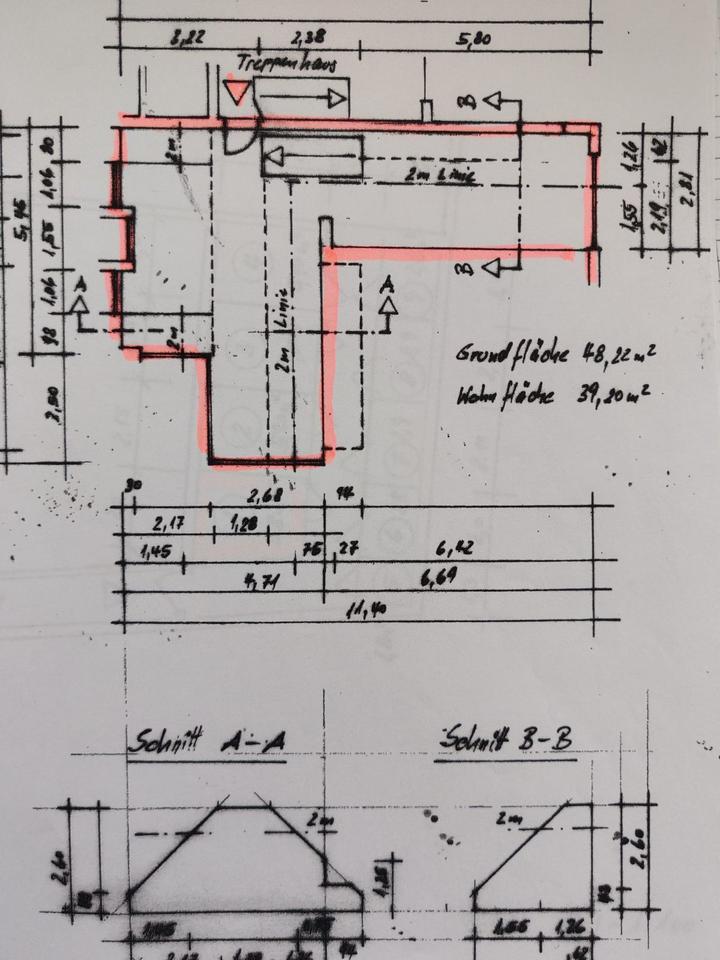 3,22 2,38 5,80
Treppenhaus
B
2m
2m Linie
20
1,06
1,55
1,06
98
5,45
2,80
1,26
42
1,55
2,19
2,81
B
A
A
2m Linie
2m
Grundfläche 48,22 m²
Wohnfläche 39,20 m²
30 2,68 94
2,17 1,28
1,45 75 27 6,42
4,71 6,69
11,40
Schnitt A-A
Schnitt B-B
2m
2m
2,60
1,25
2,60
1,55 1,26
94
,62